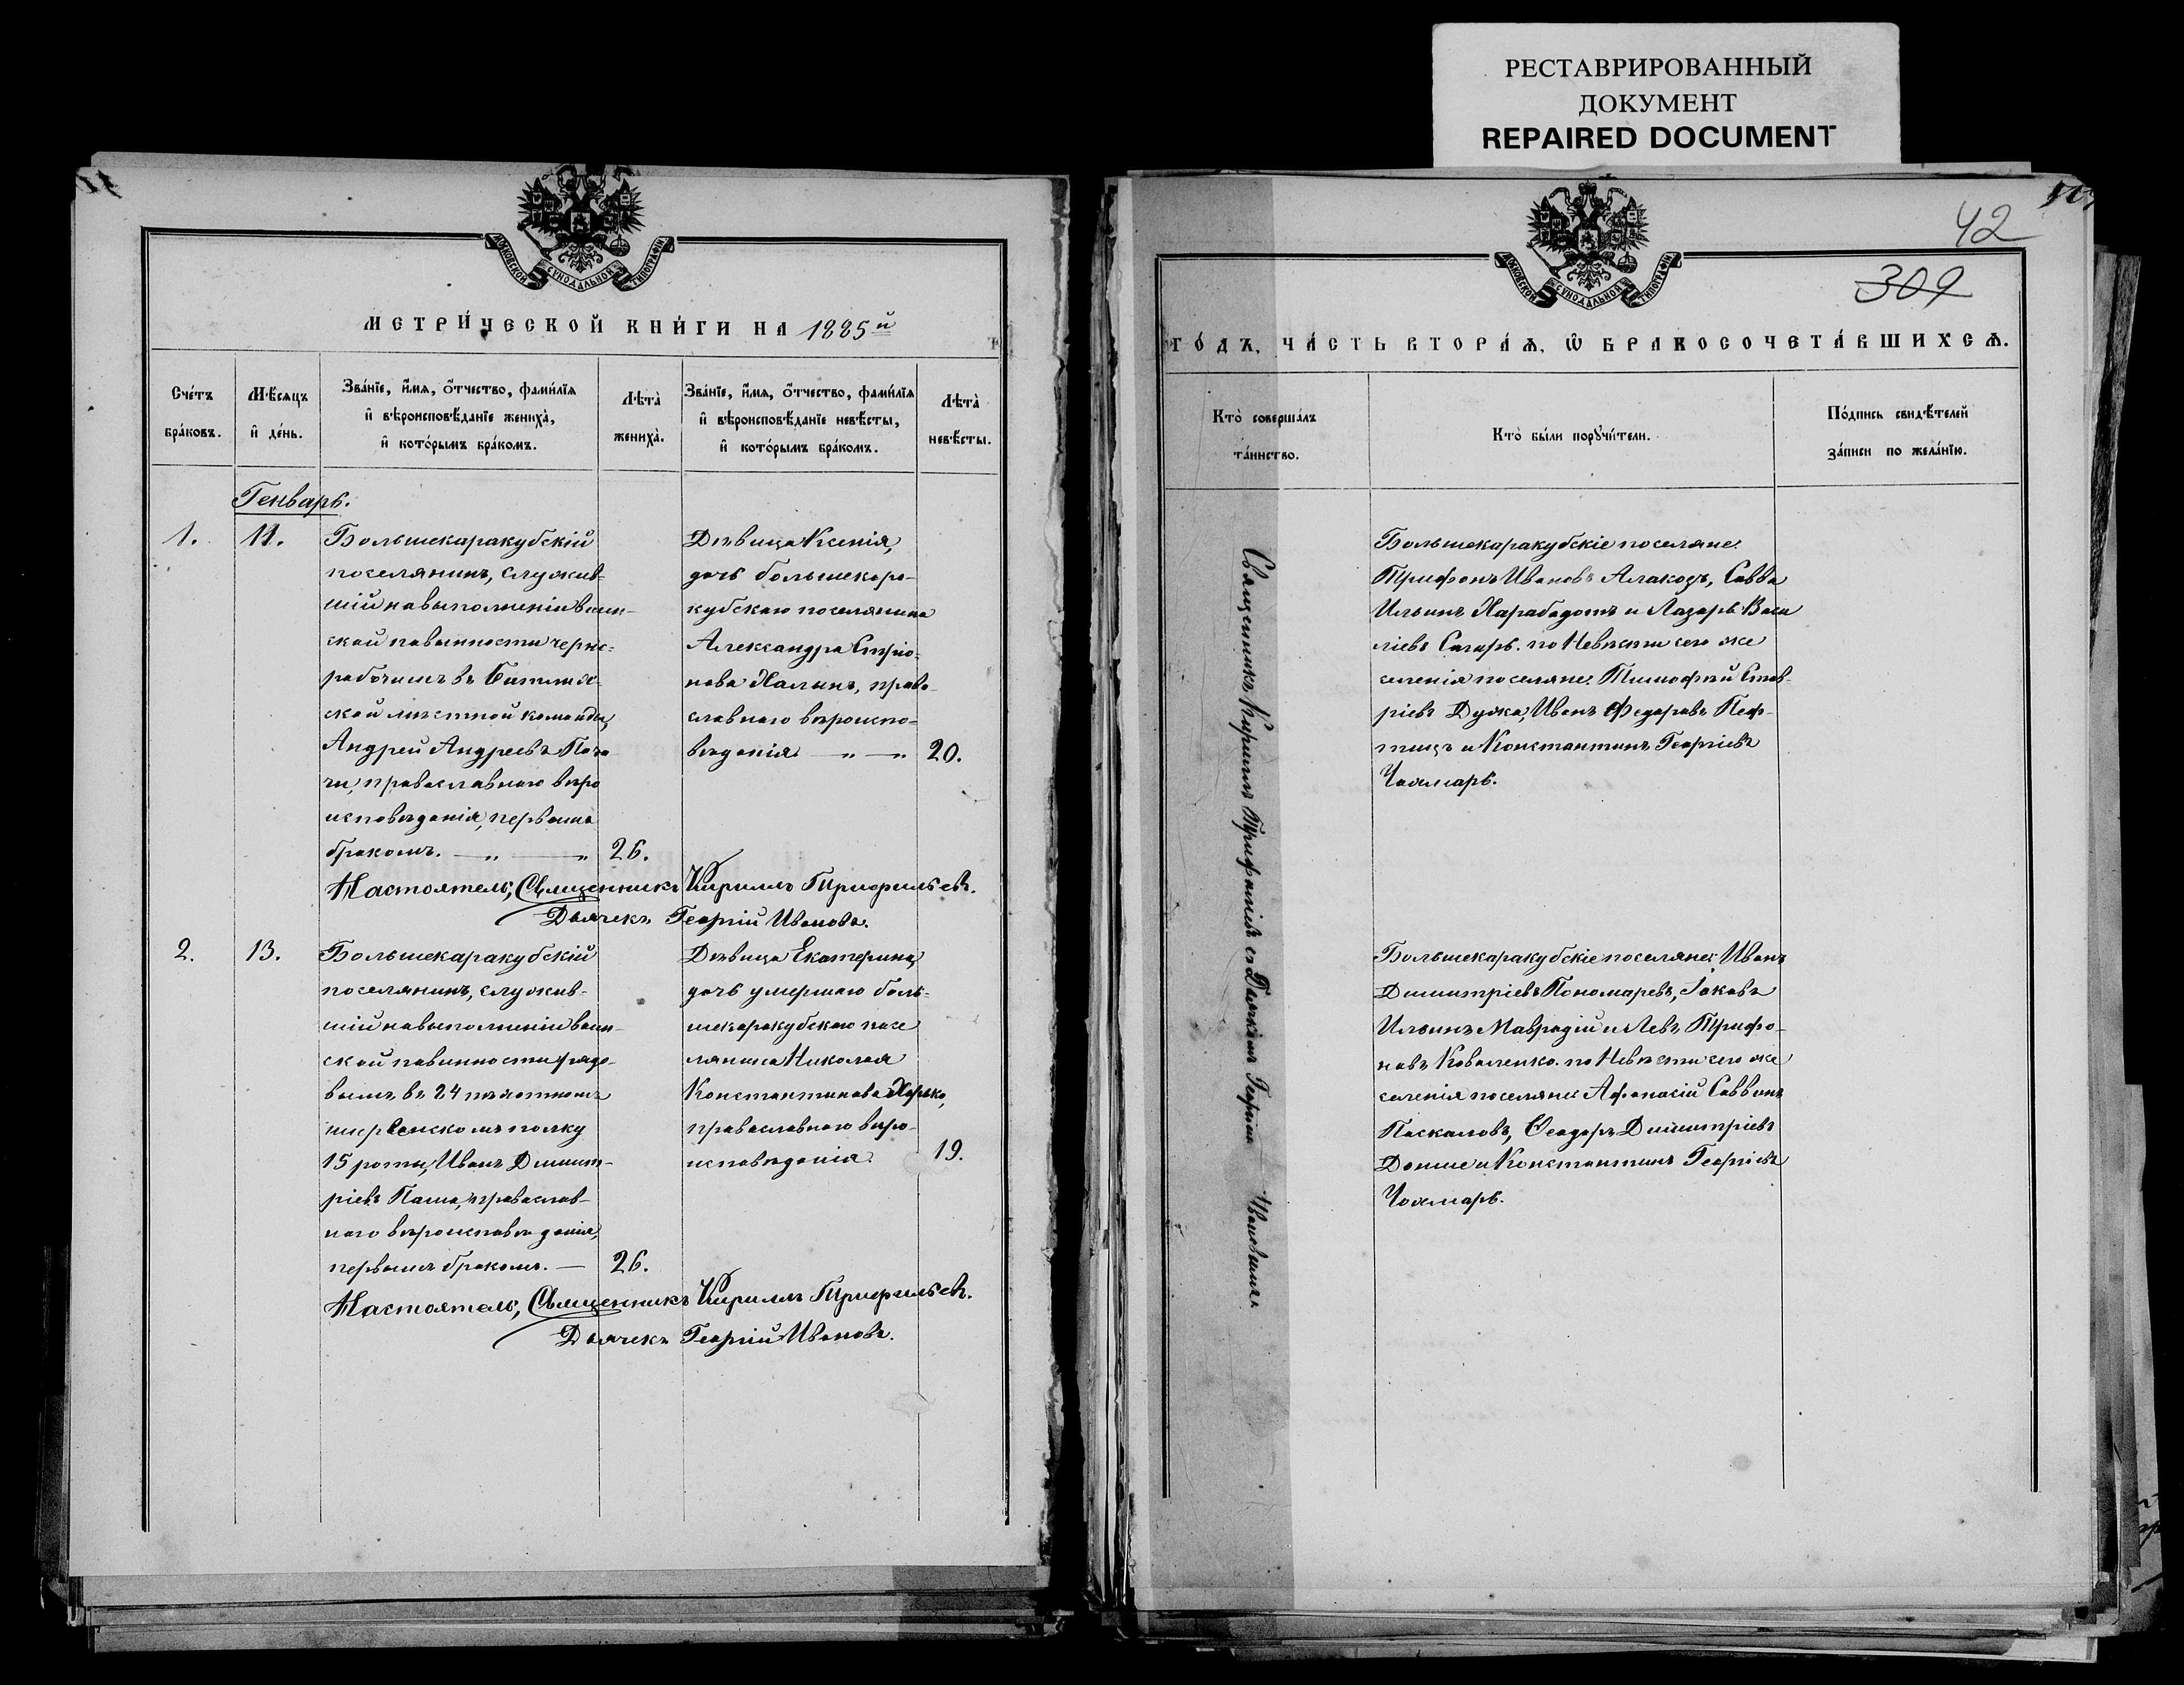 РЕСТАВРИРОВАННЫЙ
ДОКУМЕНТ
REPAIRED DOCUMENT
42
309
МОСКОВСКОЙ СѴНОДАЛЬНОЙ ТИПОГРАФІИ
МЕТРИ́ЧЕСКОЙ КНИ́ГИ НА 1885й
Сче́тъ
бра́ковъ.
Мѣ́сяцъ
и҆ де́нь.
Зва́нїе, и҆́мя, о҆́тчество, фами́лїя
и҆ вѣроисповѣ́данїе жениха̀,
и҆ кото́рымъ бра́комъ.
Лѣта̀
жениха̀.
Зва́нїе, и҆́мя, о҆́тчество, фами́лїя
и҆ вѣроисповѣ́данїе невѣ́сты,
и҆ кото́рымъ бра́комъ.
Лѣта̀
невѣ́сты.
Генварь.
1.
11.
Большекаракубскій
поселянинъ, служив-
шій на выполненіи воин-
ской повинности черно-
рабочимъ въ
ской мѣстной команды,
Андрей Андреевъ
православнаго вѣро
исповѣданія, первымъ
бракомъ. — „ — „
26.
Дѣвица Ксенія,
дочь большекара-
кубскаго поселянина
Александра
Халынъ, право-
славнаго вѣроиспо-
вѣданія — „ — „
20.
Настоятель, Священникъ Кириллъ Трифильевъ.
Дьячекъ Георгій Ивановъ.
2.
13.
Большекаракубскій
поселянинъ, служив-
шій на выполненіи воин-
ской повинности рядо-
вымъ въ 24 пѣхотномъ
полку
15 роты, Иванъ Димит-
ріевъ Паша, православ-
наго вѣроисповѣданія,
первымъ бракомъ. —
26.
Дѣвица Екатерина,
дочь умершаго боль-
шекаракубскаго посе
лянина Николая
Константинова Харько,
православнаго вѣро-
исповѣданія.
19.
Настоятель, Священникъ Кириллъ Трифильевъ.
Дьячекъ Георгій Ивановъ.
ГО́ДЪ, ЧА́СТЬ ВТОРА́Ѧ, Ѡ БРАКОСОЧЕТА́ВШИХСѦ.
Кто̀ соверша́лъ
та́инство.
Кто̀ бы́ли порꙋчи́тели.
По́дпись свидѣ́телей
за́писи по жела́нїю.
Священникъ Кириллъ Трифильевъ съ Дьячкомъ Георгіемъ Ивановымъ
Большекаракубскіе поселяне:
Трифонъ Ивановъ Алакозъ, Савва
Ильинъ Харабадотъ и Лазарь Васи
ліевъ Сагиръ. по Невѣсти сего же
селенія поселяне: Тимофѣй Став-
ріевъ Дужа, Иванъ Федоровъ Пеф-
тицъ и Константинъ Георгіевъ
Чахмаръ.
Большекаракубскіе поселяне: Иванъ
Димитріевъ Пономаревъ, Іаковъ
Ильинъ Маврадій и Левъ Трифо-
новъ Коваленко. по Невѣсти сего же
селенія поселяне: Афанасій Саввинъ
Паскаловъ, Ѳеодоръ Димитріевъ
Донше и Константинъ Георгіевъ
Чахмаръ.